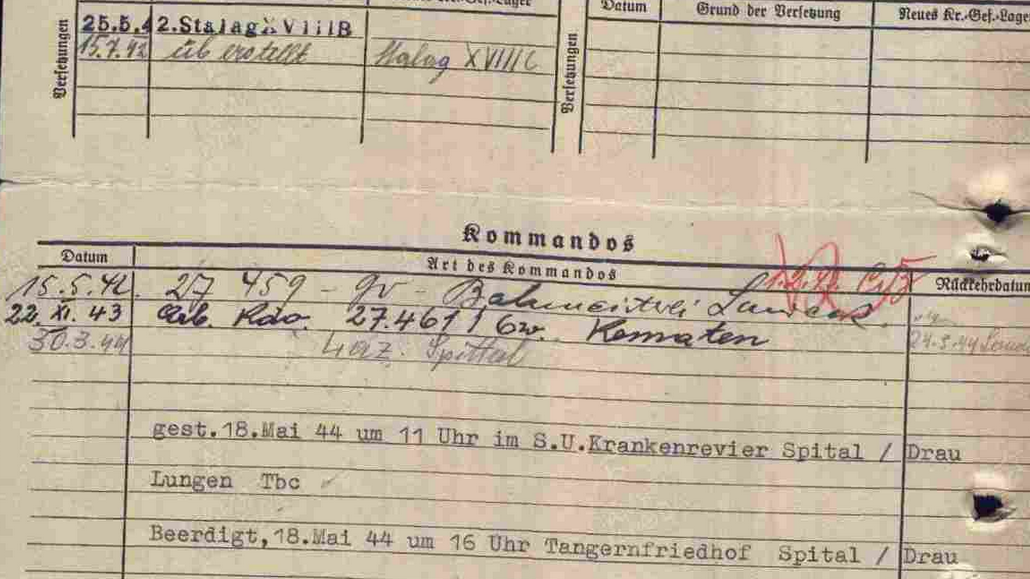 Datum Grund der Versetzung Neues Kr.-Gef.-Lager
Versetzungen
25.5.42. Stalag XVIIIB
15.7.42 überstellt Stalag XVIIIC
Versetzungen
Kommandos
Datum Art des Kommandos Rückkehrdatum
15.5.42. 27 459 - gw - Bahnmeisterei
22. XI. 43 Arb. Kdo. 27.461 Gw. Kematen
30.3.44 Laz. Spittal
gest.18.Mai 44 um 11 Uhr im S.U.Krankenrevier Spital / Drau
Lungen Tbc
Beerdigt,18.Mai 44 um 16 Uhr Tangernfriedhof Spital / Drau